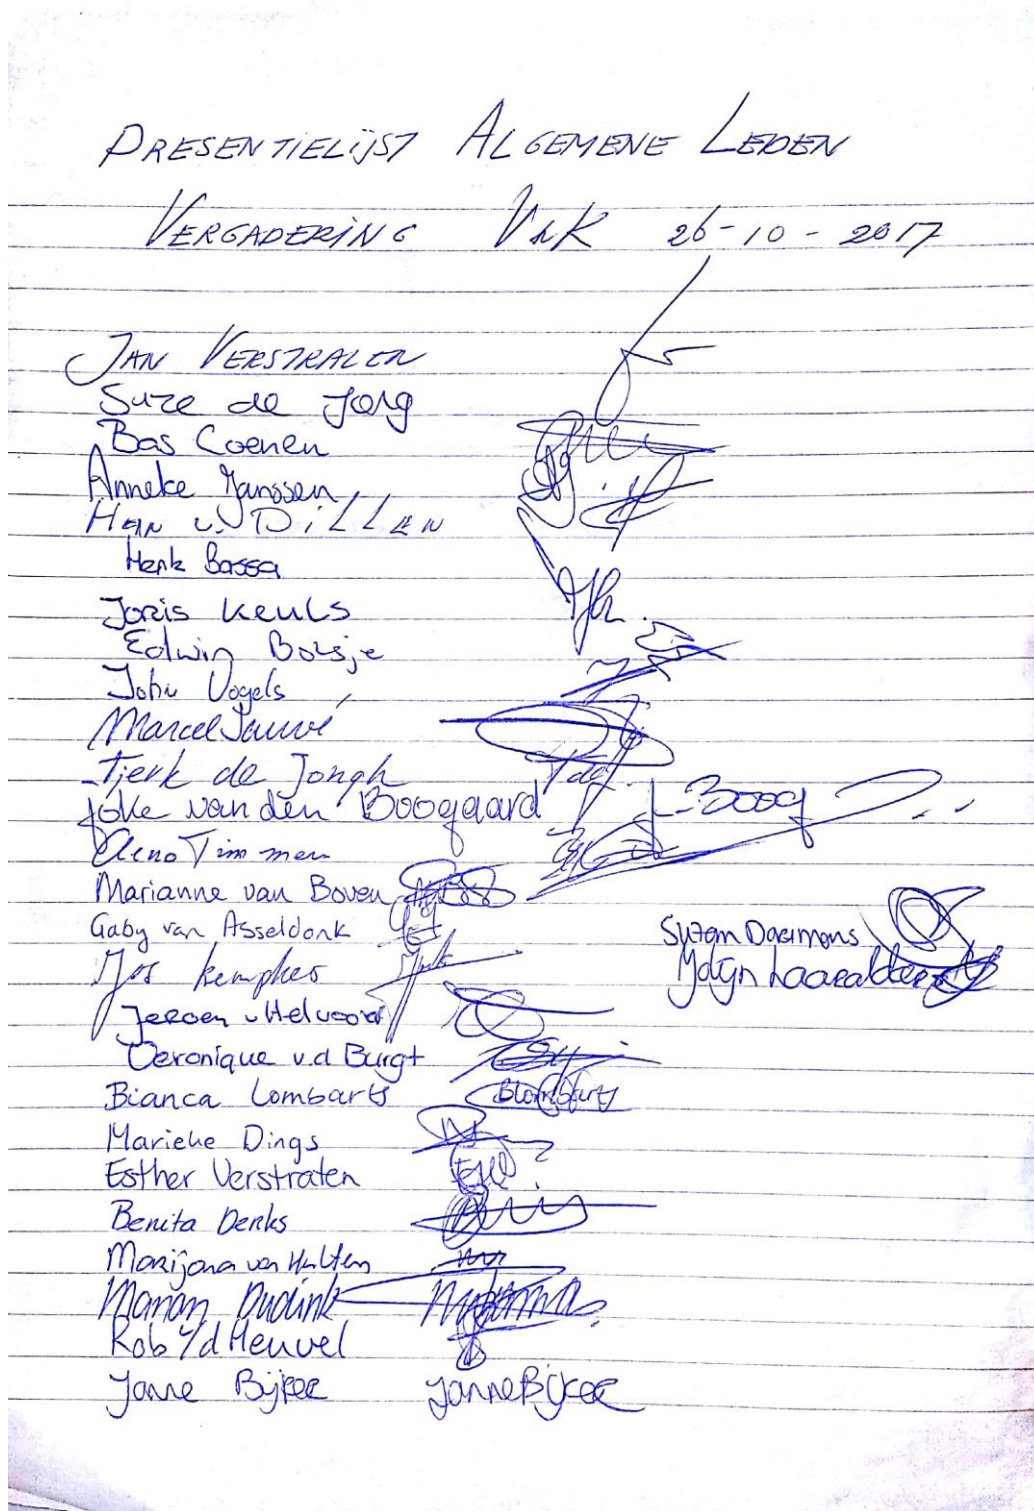 PRESENTIELIJST ALGEMENE LEDEN
VERGADERING VvK 26-10-2017
JAN VERSTRALEN
Suze de Jong
Bas Coenen
Anneke Janssen
HEIN v. DILLEN
Henk Bassa
Joris Keuls
Edwin Boksje
John Vogels
Marcel Sauvé
Tjerk de Jongh
Joke van den Boogaard J-Boog
Timmer
Marianne van Boven
Gaby van Asseldonk
Suzan Daemans
Jos Kempkes
Jolijn Laaralder
Jeroen v Helvoort
Veronique v.d Burgt
Bianca Lombarts BLombarts
Marieke Dings
Esther Verstraten
Benita Derks
Marijana van Hulten
Manon Dudink
Rob v/d Heuvel
Janne Bijker Janne Bijker